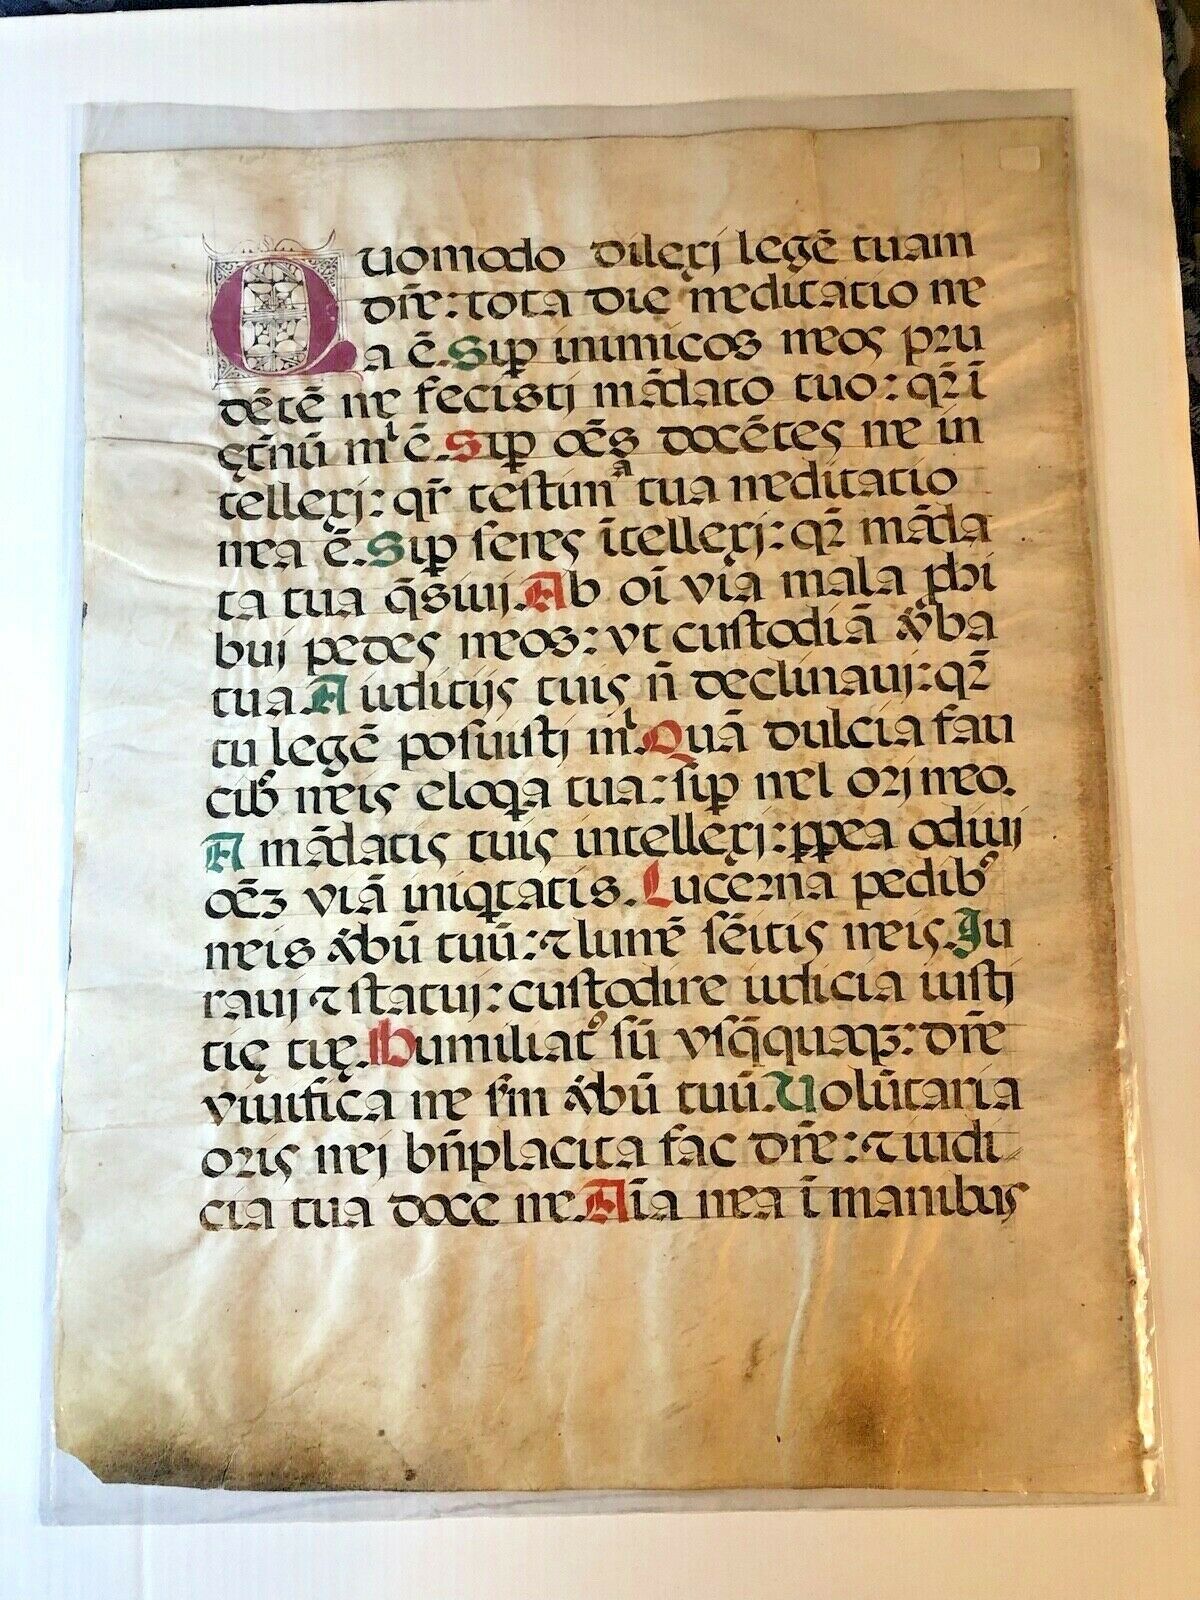 Quomodo dilexj legē tuam
dn̄e: tota die meditatio me
a ē. Suꝑ inimicos meos pru
dētē me fecistj mādato tuo: qꝛ̄ ī
ęt̄nū mͥ ē. Suꝑ oēs docētes me in
tellexj: qr̄ testimᵃ tua meditatio
mea ē. Suꝑ senes ītellexj: qꝛ̄ māda
ta tua q̄siuij. Ab oī via mala ꝓhi
buj pedes meos: vt custodiā v̓ba
tua. A iudicijs tuis n̄ declinauj: qꝛ̄
tu legē posuistj mͥ. Quā dulcia fau
cibꝰ meis eloqa tua: suꝑ mel orj meo.
A mādatis tuis intellexj: ꝓꝑea odiuj
oēꝫ viā iniqtatis. Lucerna pedibꝰ
meis v̓bū tuū: ⁊ lumē sēitis meis. Ju
rauj ⁊ statuj: custodire iudicia iustj
tię tuę. Humiliatꝰ sū vsq̄quaqꝫ: dn̄e
viuifica me s̄m v̓bū tuū. Volūtaria
oris mej bn̄placita fac dn̄e: ⁊ iudi
cia tua doce me. Aīa mea ī manibus